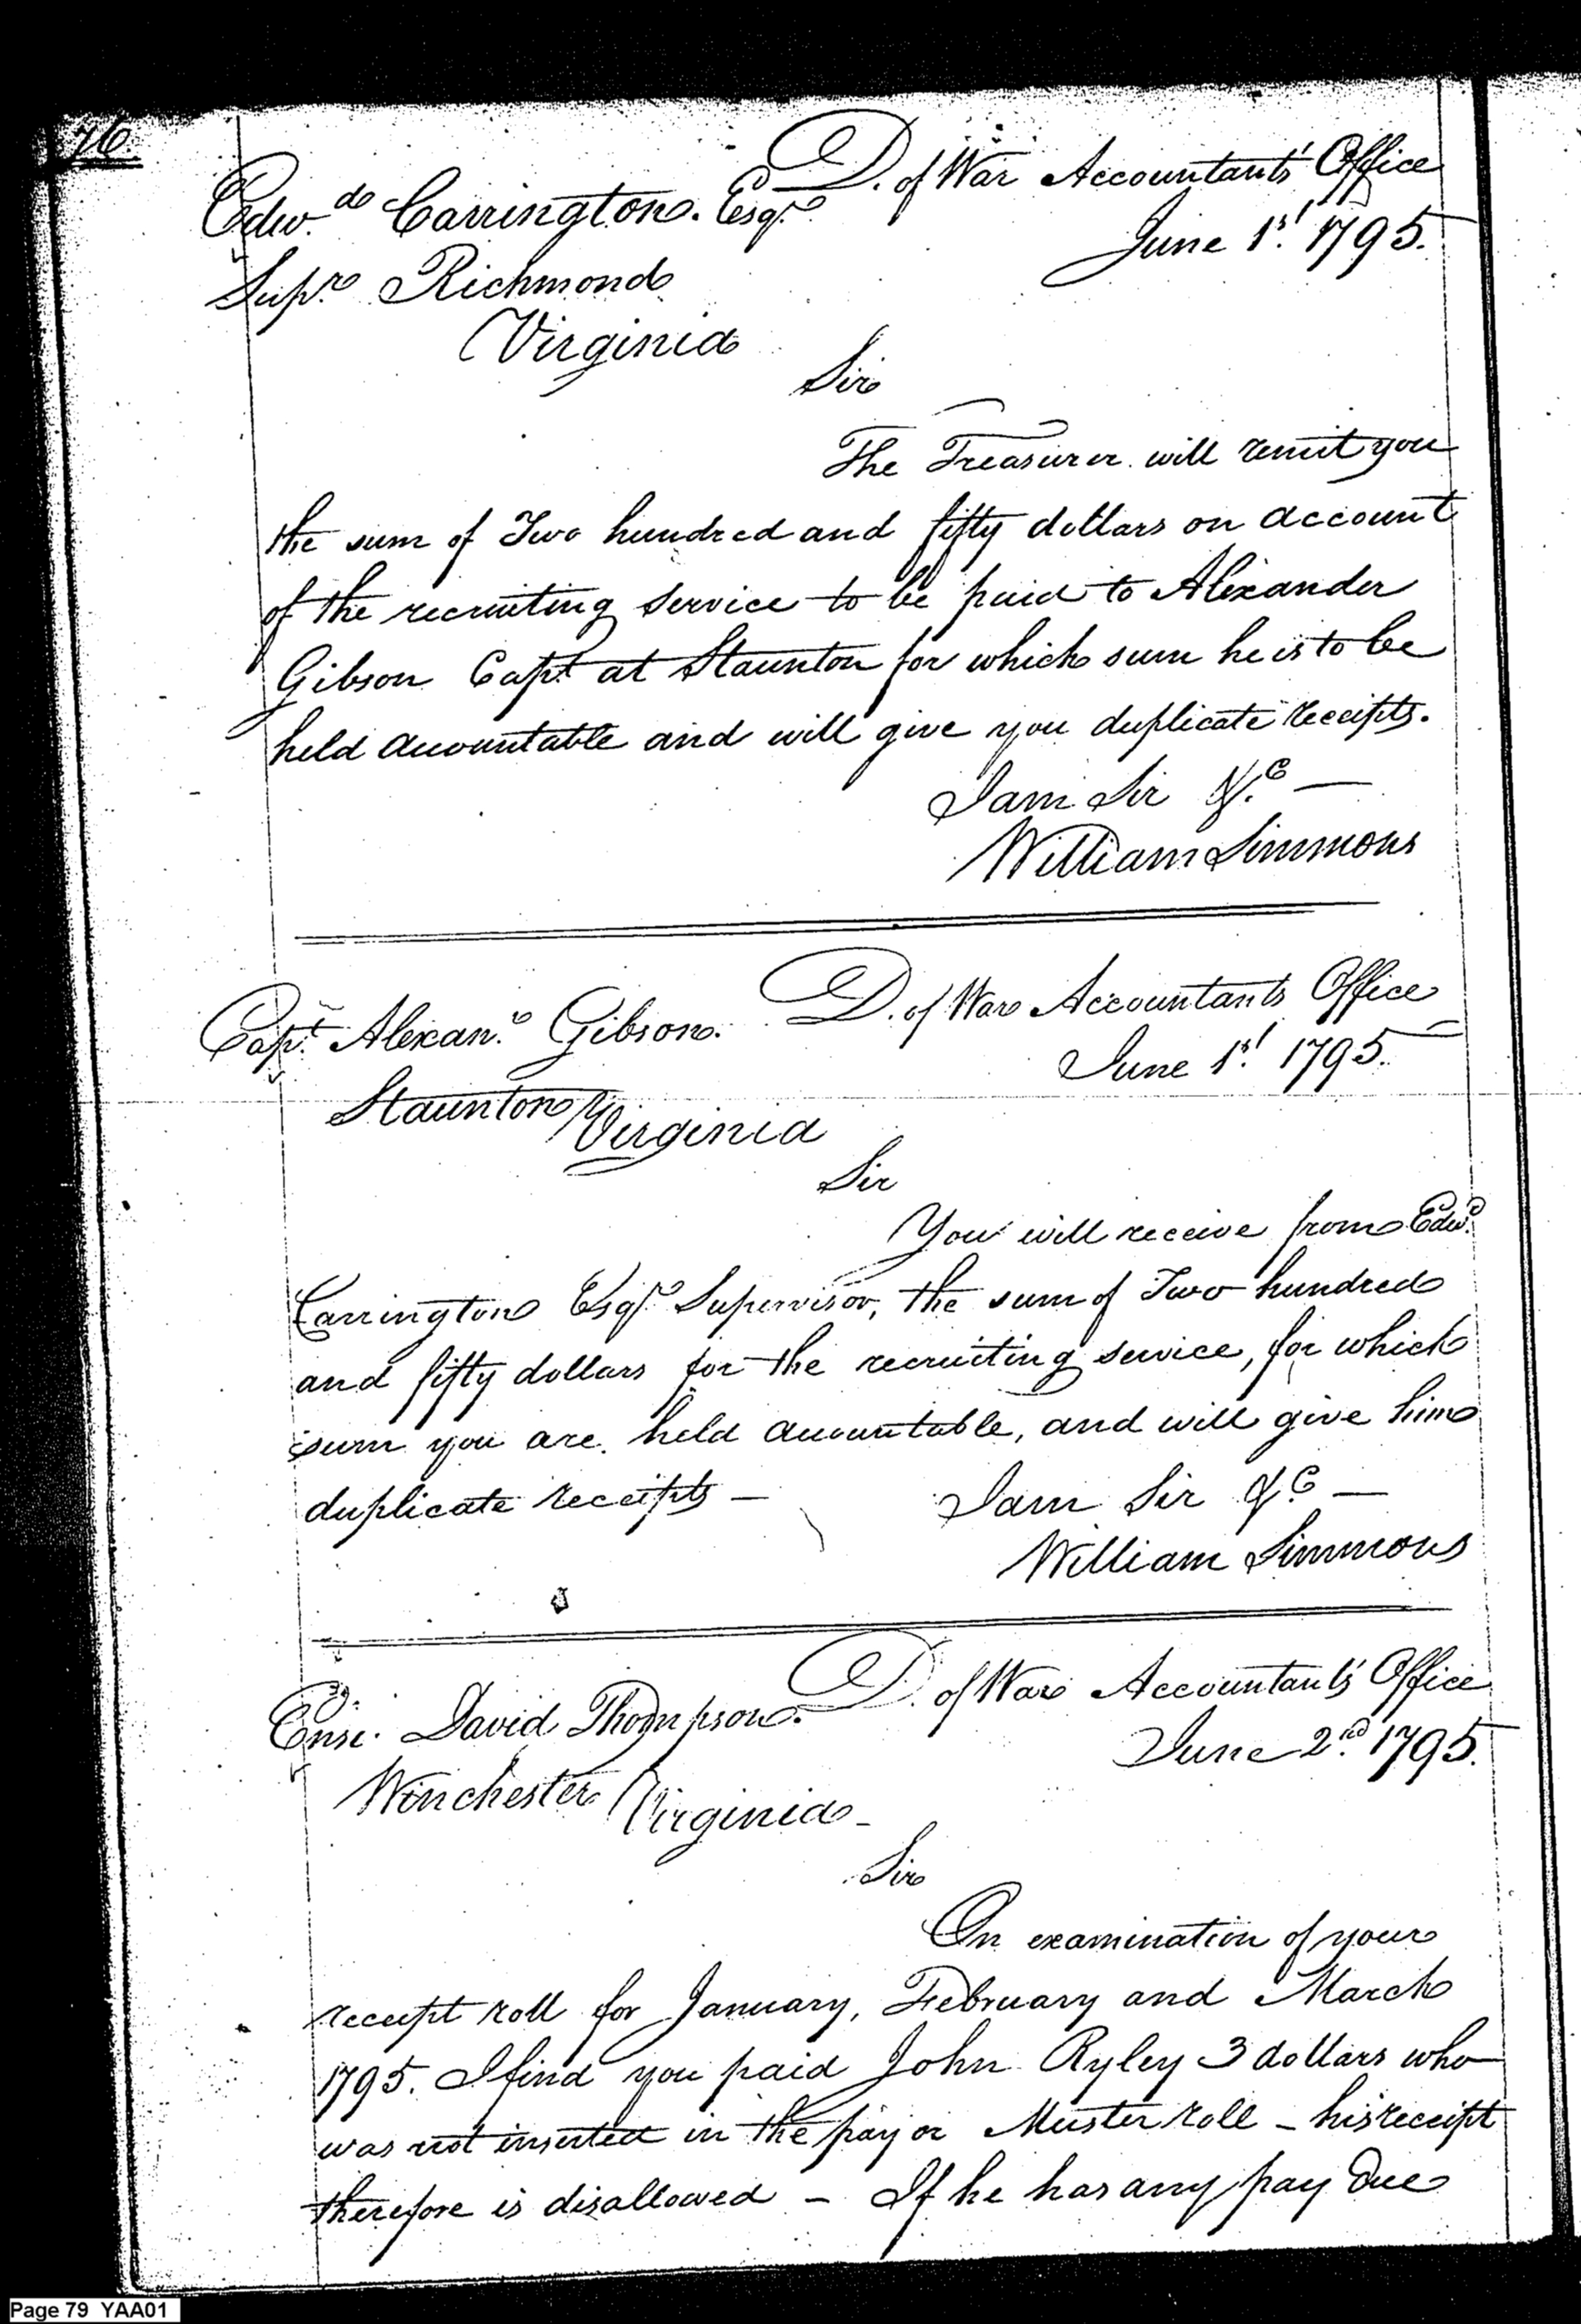 76.
D. of War Accountants' Office
Edw.do Carrington. Esqr.
June 1st. 1795.
Supr. Richmond
Virginia
Sir
The Treasurer will remit you
the sum of Two hundred and fifty dollars on account
of the recruiting service to be paid to Alexander
Gibson Capt. at Staunton for which sum he is to be
held accountable and will give you duplicate receipts.
I am Sir &.c —
William Simmons
D. of War Accountants Office
Capt. Alexan.r Gibson.
June 1st. 1795.
Staunton Virginia
Sir
You will receive from Edwd.
Carrington Esqr. Supervisor, the sum of Two hundred
and fifty dollars for the recruiting service, for which
sum you are held accountable, and will give him
duplicate receipts —
I am Sir &.c —
William Simmons
D. of War Accountants' Office
Ensi. David Thompson.
June 2nd. 1795.
Winchester Virginia –
Sir
On examination of your
receipt roll for January, February and March
1795. I find you paid John Ryley 3 dollars who
was not inserted in the pay or Muster roll – his receipt
therefore is disallowed – If he has any pay due
Page 79 YAA01